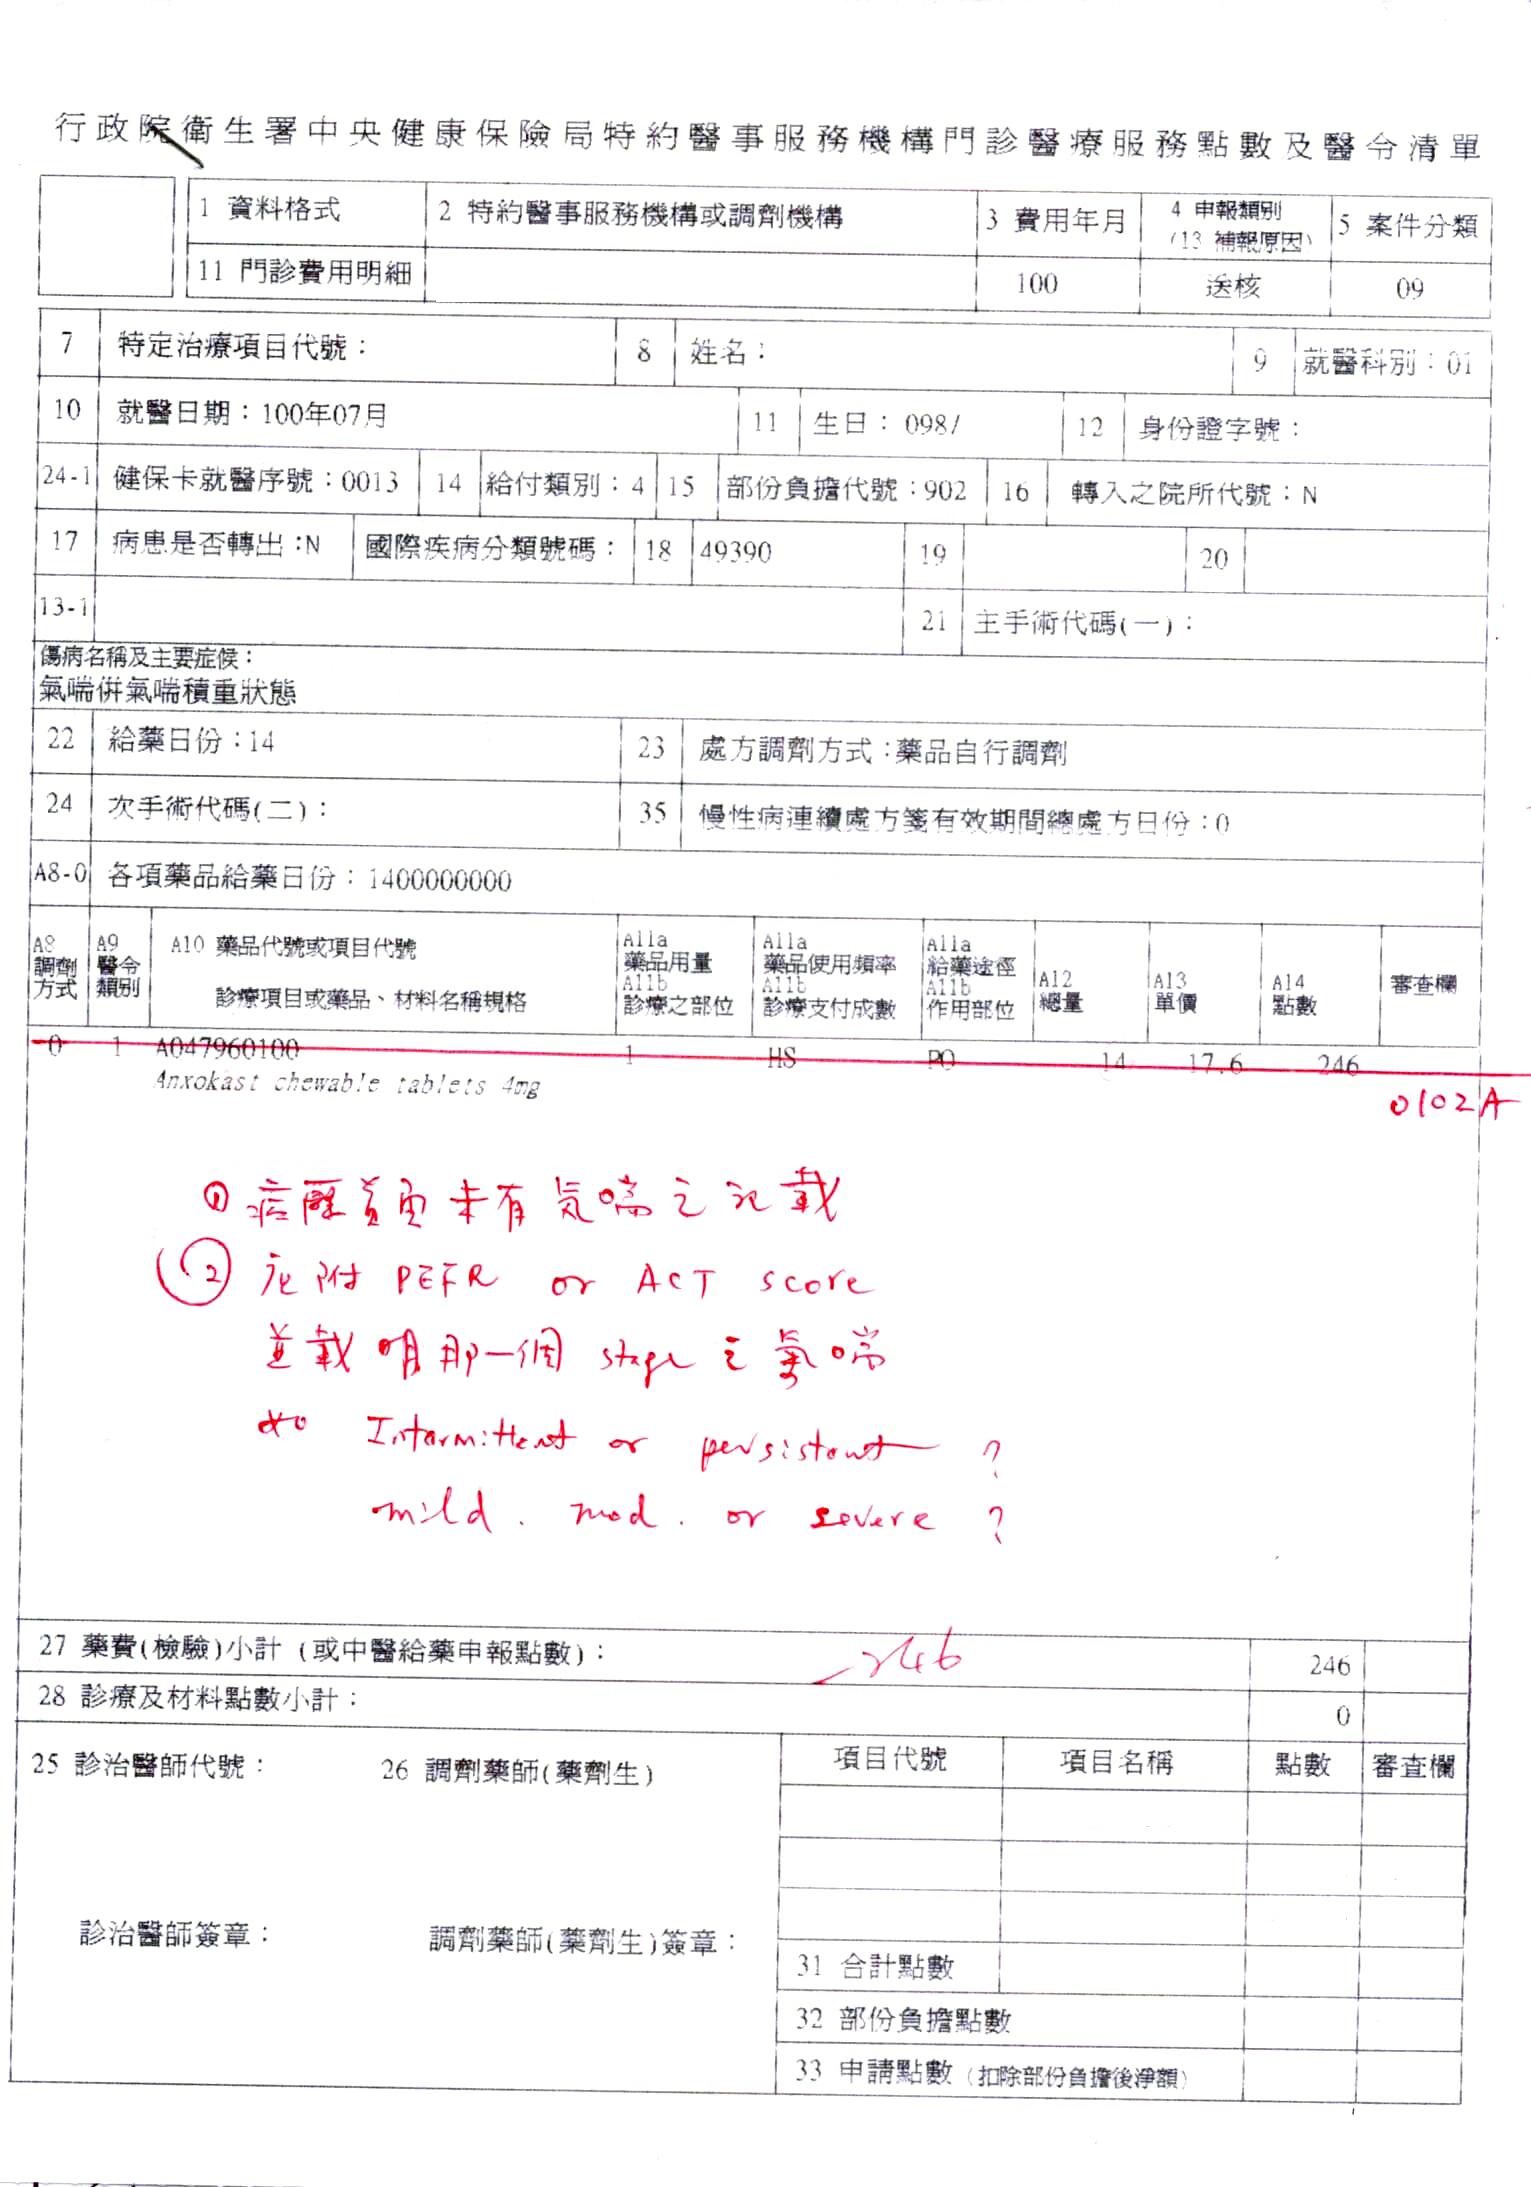 行政院衛生署中央健康保險局特約醫事服務機構門診醫療服務點數及醫令清單
1 資料格式 2 特約醫事服務機構或調劑機構 3 費用年月 4 申報類別 (13 補報原因) 5 案件分類
11 門診費用明細 100 送核 09
7 特定治療項目代號： 8 姓名： 9 就醫科別：01
10 就醫日期：100年07月 11 生日：098/ 12 身份證字號：
24-1 健保卡就醫序號：0013 14 給付類別：4 15 部份負擔代號：902 16 轉入之院所代號：N
17 病患是否轉出：N 國際疾病分類號碼： 18 49390 19 20
13-1 21 主手術代碼(一)：
傷病名稱及主要症候：
氣喘併氣喘積重狀態
22 給藥日份：14 23 處方調劑方式：藥品自行調劑
24 次手術代碼(二)： 35 慢性病連續處方箋有效期間總處方日份：0
A8-0 各項藥品給藥日份：1400000000
A8 調劑方式 A9 醫令類別 A10 藥品代號或項目代號 診療項目或藥品、材料名稱規格 A11a 藥品用量 A11b 診療之部位 A11a 藥品使用頻率 A11b 診療支付成數 A11a 給藥途徑 A11b 作用部位 A12 總量 A13 單價 A14 點數 審查欄
0 1 A047960100 1 HS PO 14 17.6 246
Anxokast chewable tablets 4mg
0102A
① 病歷首頁未有気喘之記載
② 應附 PEFR or ACT score
並載明那一個 stage 之氣喘
如 Intermittent or persistent ?
mild. mod. or severe ?
27 藥費(檢驗)小計 (或中醫給藥申報點數)： 246 246
28 診療及材料點數小計： 0
25 診治醫師代號： 26 調劑藥師(藥劑生) 項目代號 項目名稱 點數 審查欄
診治醫師簽章： 調劑藥師(藥劑生)簽章：
31 合計點數
32 部份負擔點數
33 申請點數 (扣除部份負擔後淨額)